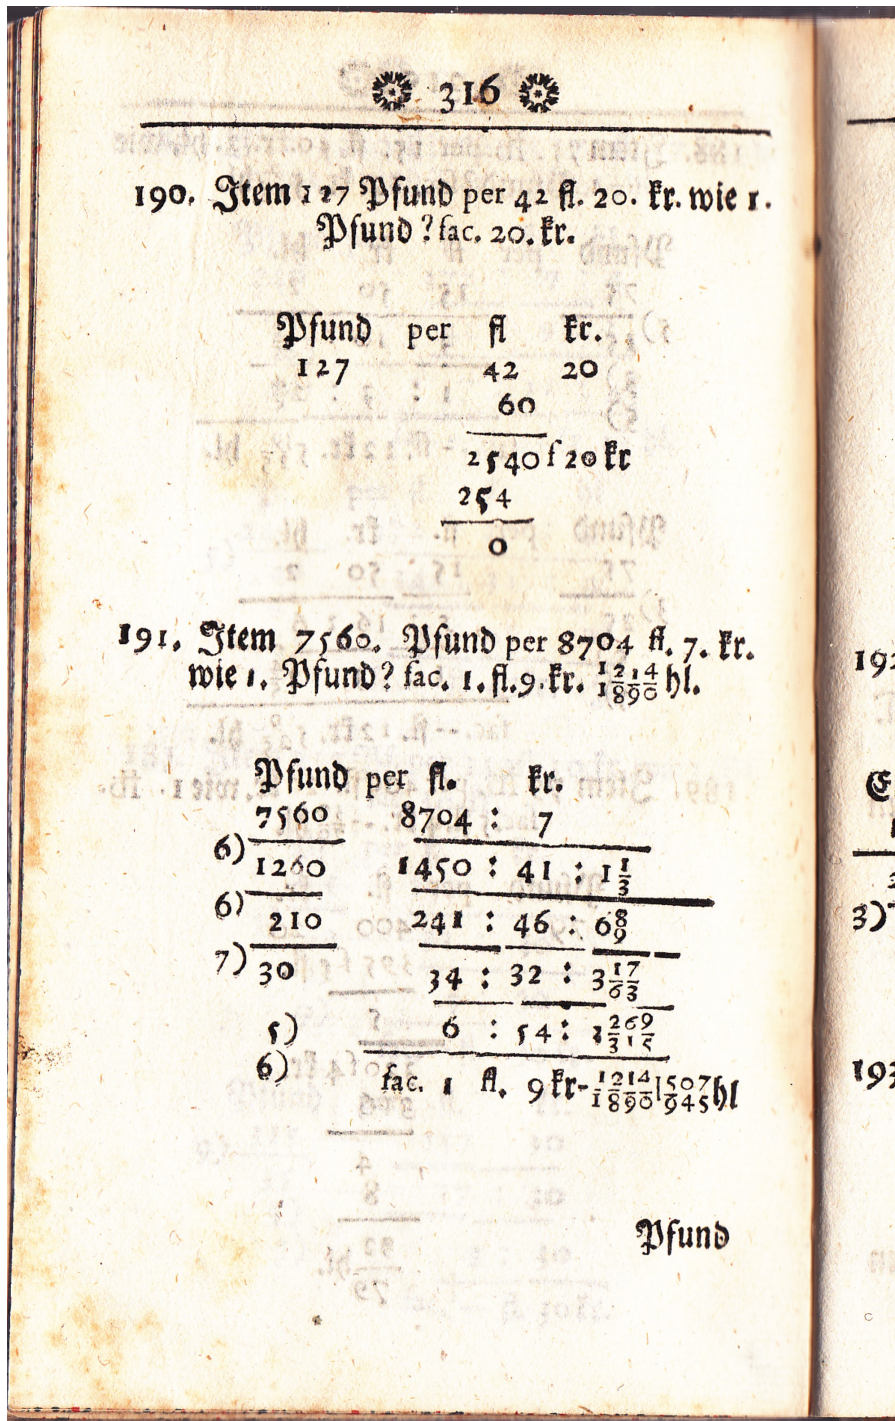 316
190. Item 127 Pfund per 42 fl. 20. kr. wie 1.
Pfund? fac. 20. kr.
Pfund per fl kr.
127 42 20
60
2540 ſ 20 kr
254
0
191. Item 7560. Pfund per 8704 fl. 7. kr.
wie 1. Pfund? fac. 1. fl. 9. kr. 1 1214/1890 hl.
Pfund per fl. kr.
7560 8704 : 7
6) 1260 1450 : 41 : 1 1/3
6) 210 241 : 46 : 6 8/9
7) 30 34 : 32 : 3 17/63
5) 6 : 54 : 1 269/315
6) fac. 1 fl. 9 kr- 1 1214/1890 | 507/945 hl
Pfund
192
E
3)
193